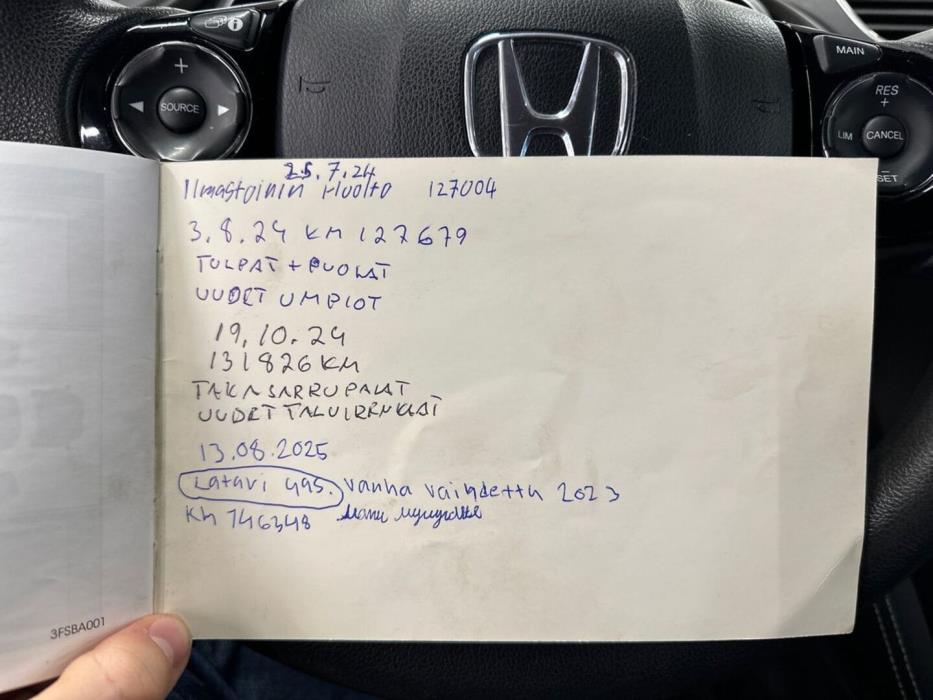 SOURCE
MAIN
RES
+
LIM
CANCEL
SET
25.7.24
Ilmastoinin Huolto 127004
3.8.24 KM 127679
TULPAT + PUOLAT
UUDET UMPIOT
19.10.24
131826 KM
TAKASARRUPALAT
UUDET TALVIRENKAAT
13.08.2025
Latari yas. vanha vaihdettu 2023
KM 146348
3FSBA001